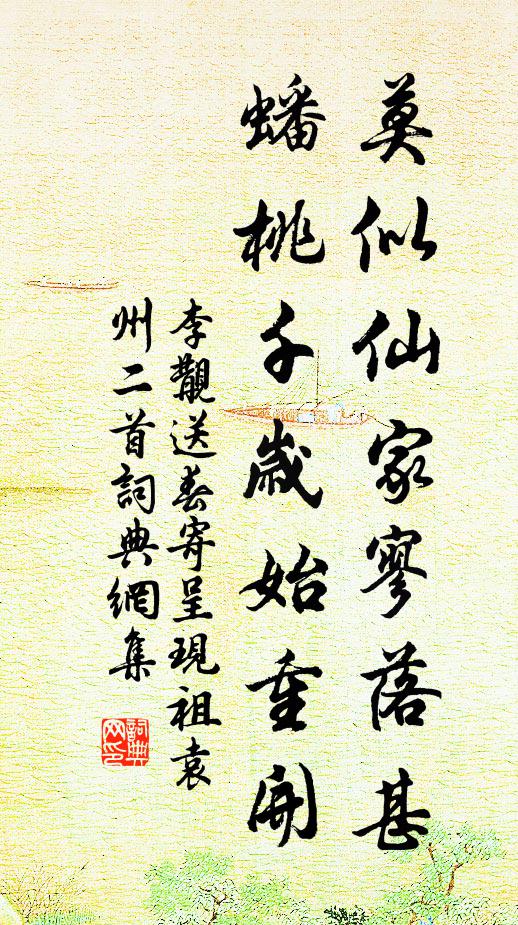 莫似仙家寥落甚
蟠桃千歲始重開
李覯送春寄呈現祖袁
州二首詞典網集
詞典
网印